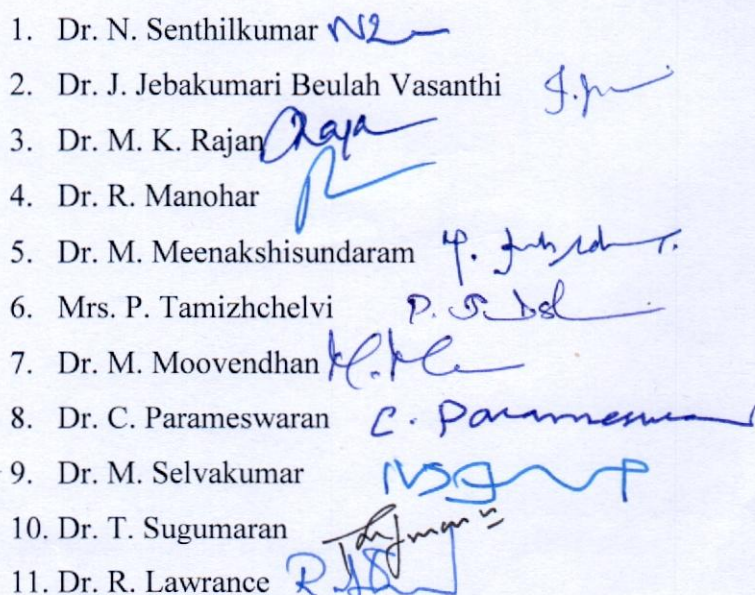 1. Dr. N. Senthilkumar
2. Dr. J. Jebakumari Beulah Vasanthi
3. Dr. M. K. Rajan
4. Dr. R. Manohar
5. Dr. M. Meenakshisundaram
6. Mrs. P. Tamizhchelvi
7. Dr. M. Moovendhan
8. Dr. C. Parameswaran
9. Dr. M. Selvakumar
10. Dr. T. Sugumaran
11. Dr. R. Lawrance